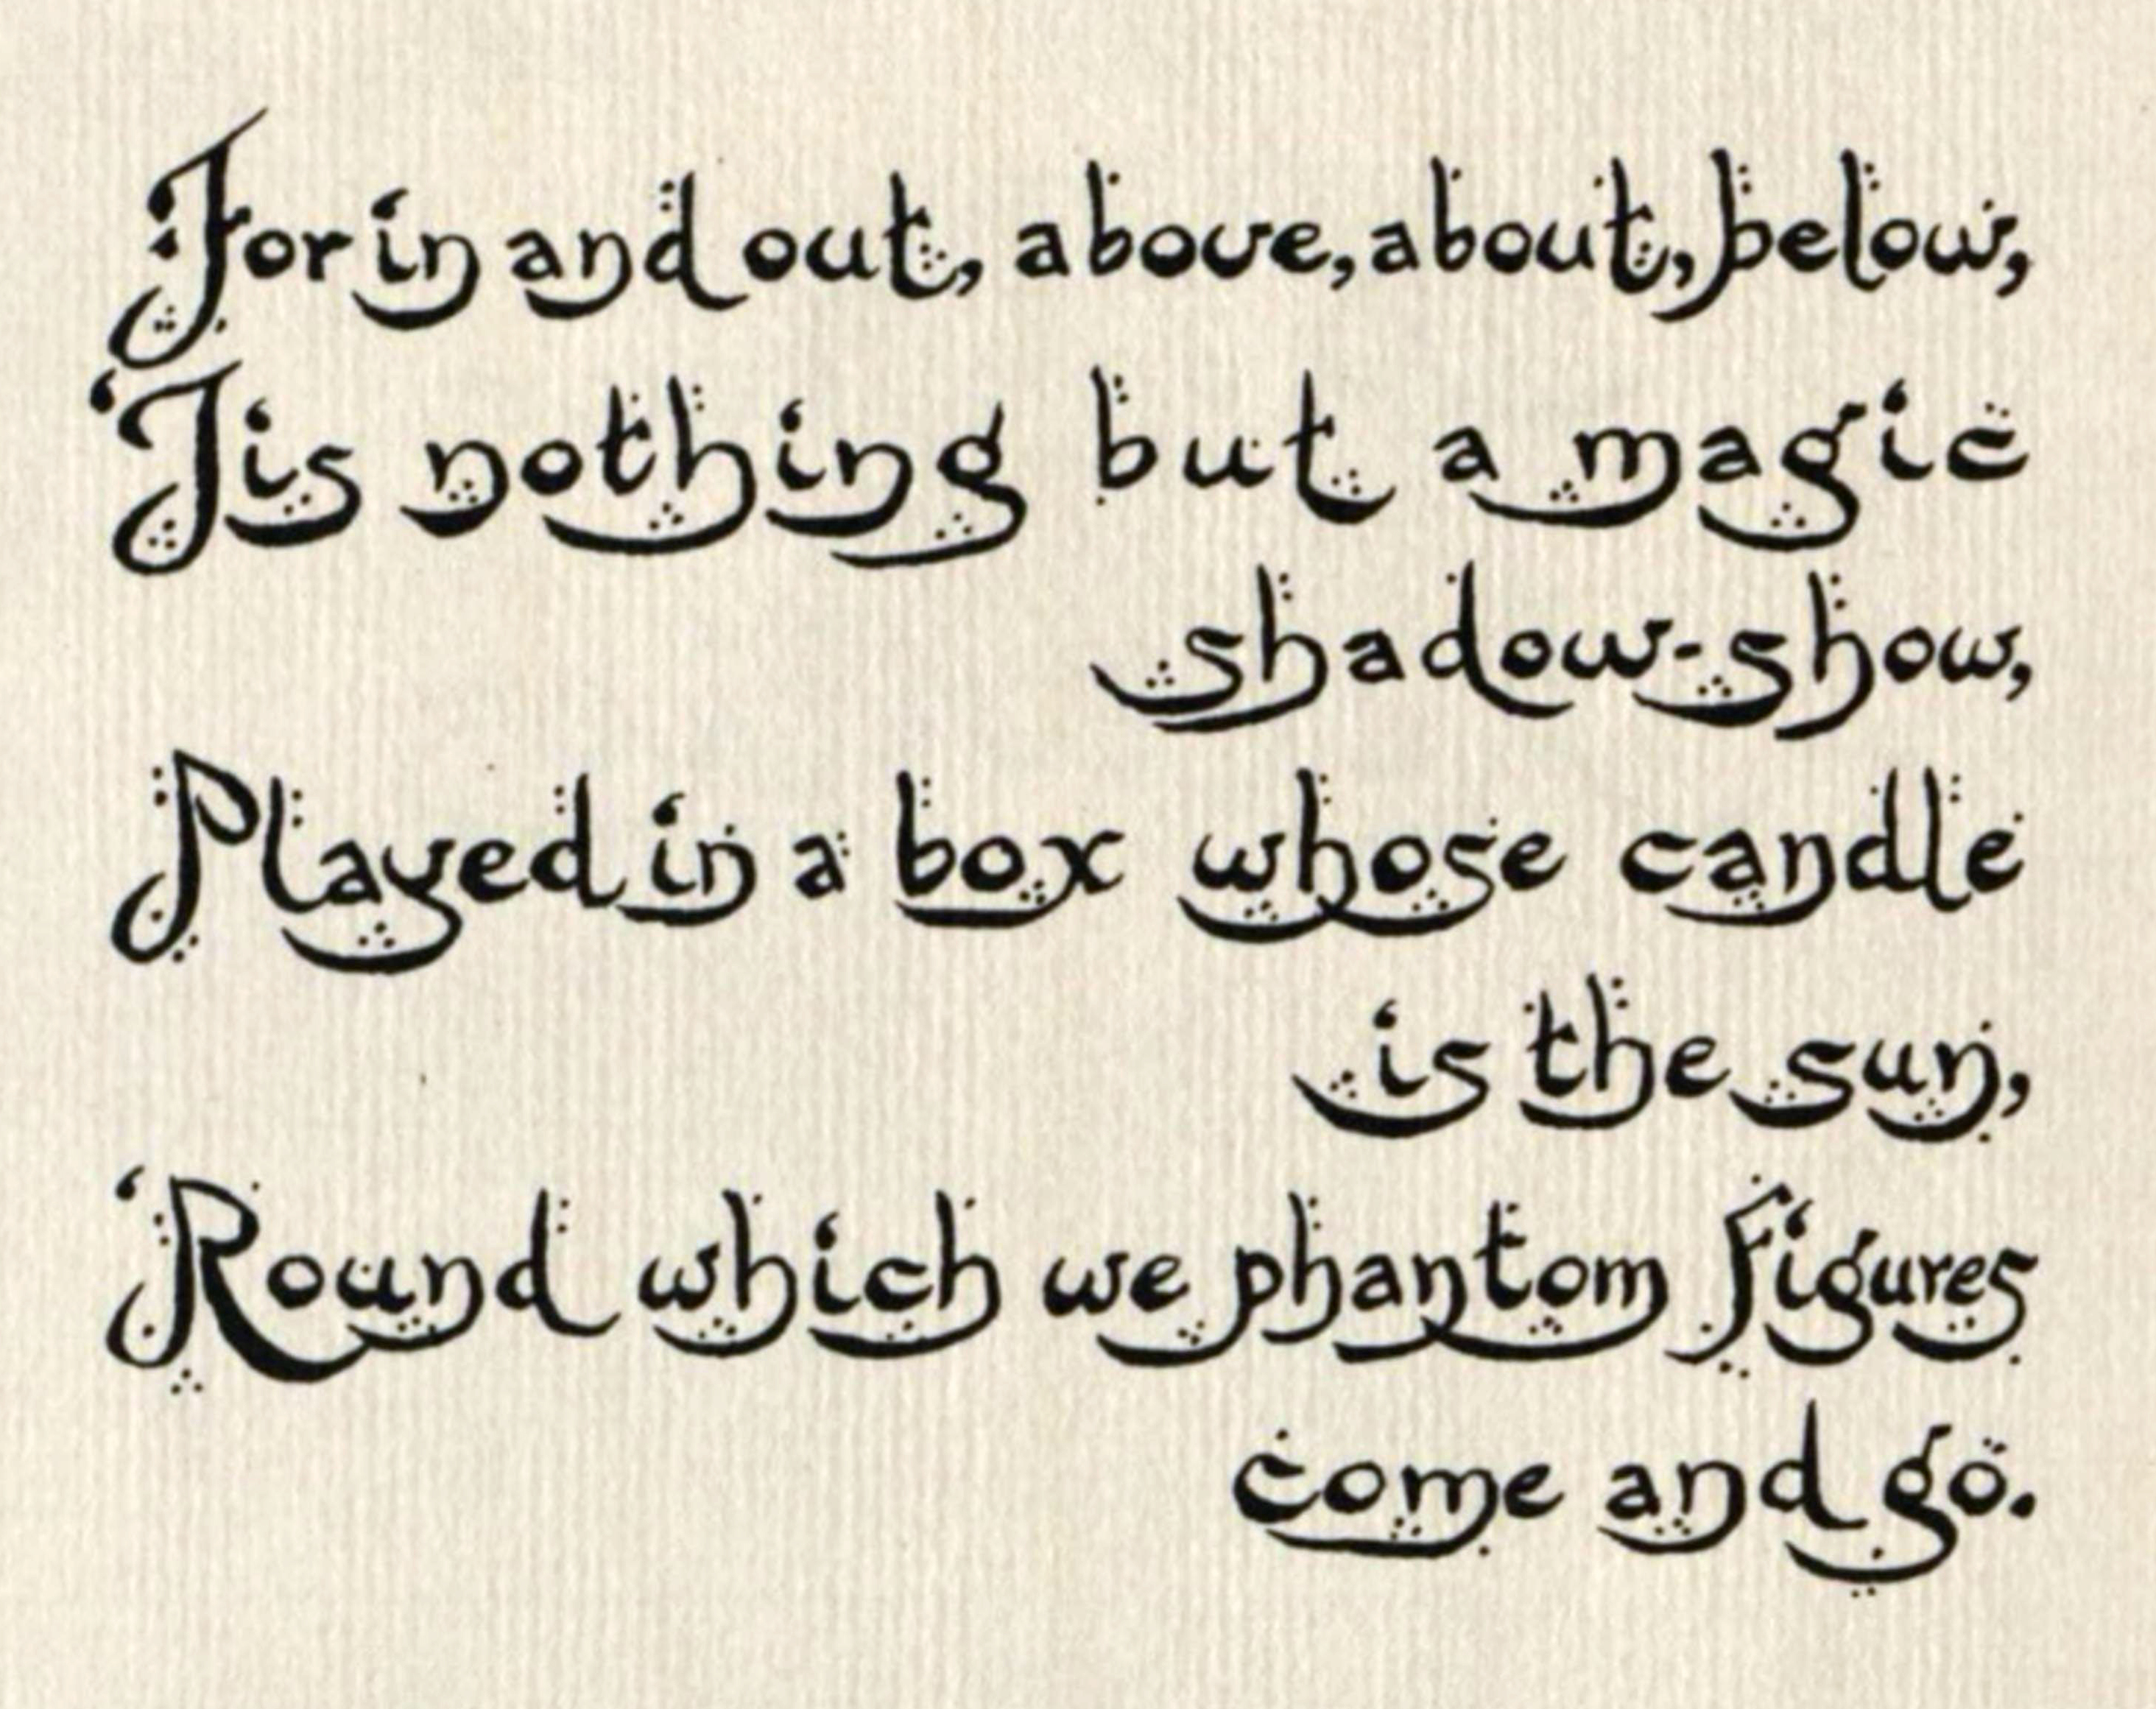 For in and out, above, about, below,
'Tis nothing but a magic
shadow-show,
Played in a box whose candle
is the sun,
'Round which we phantom figures
come and go.